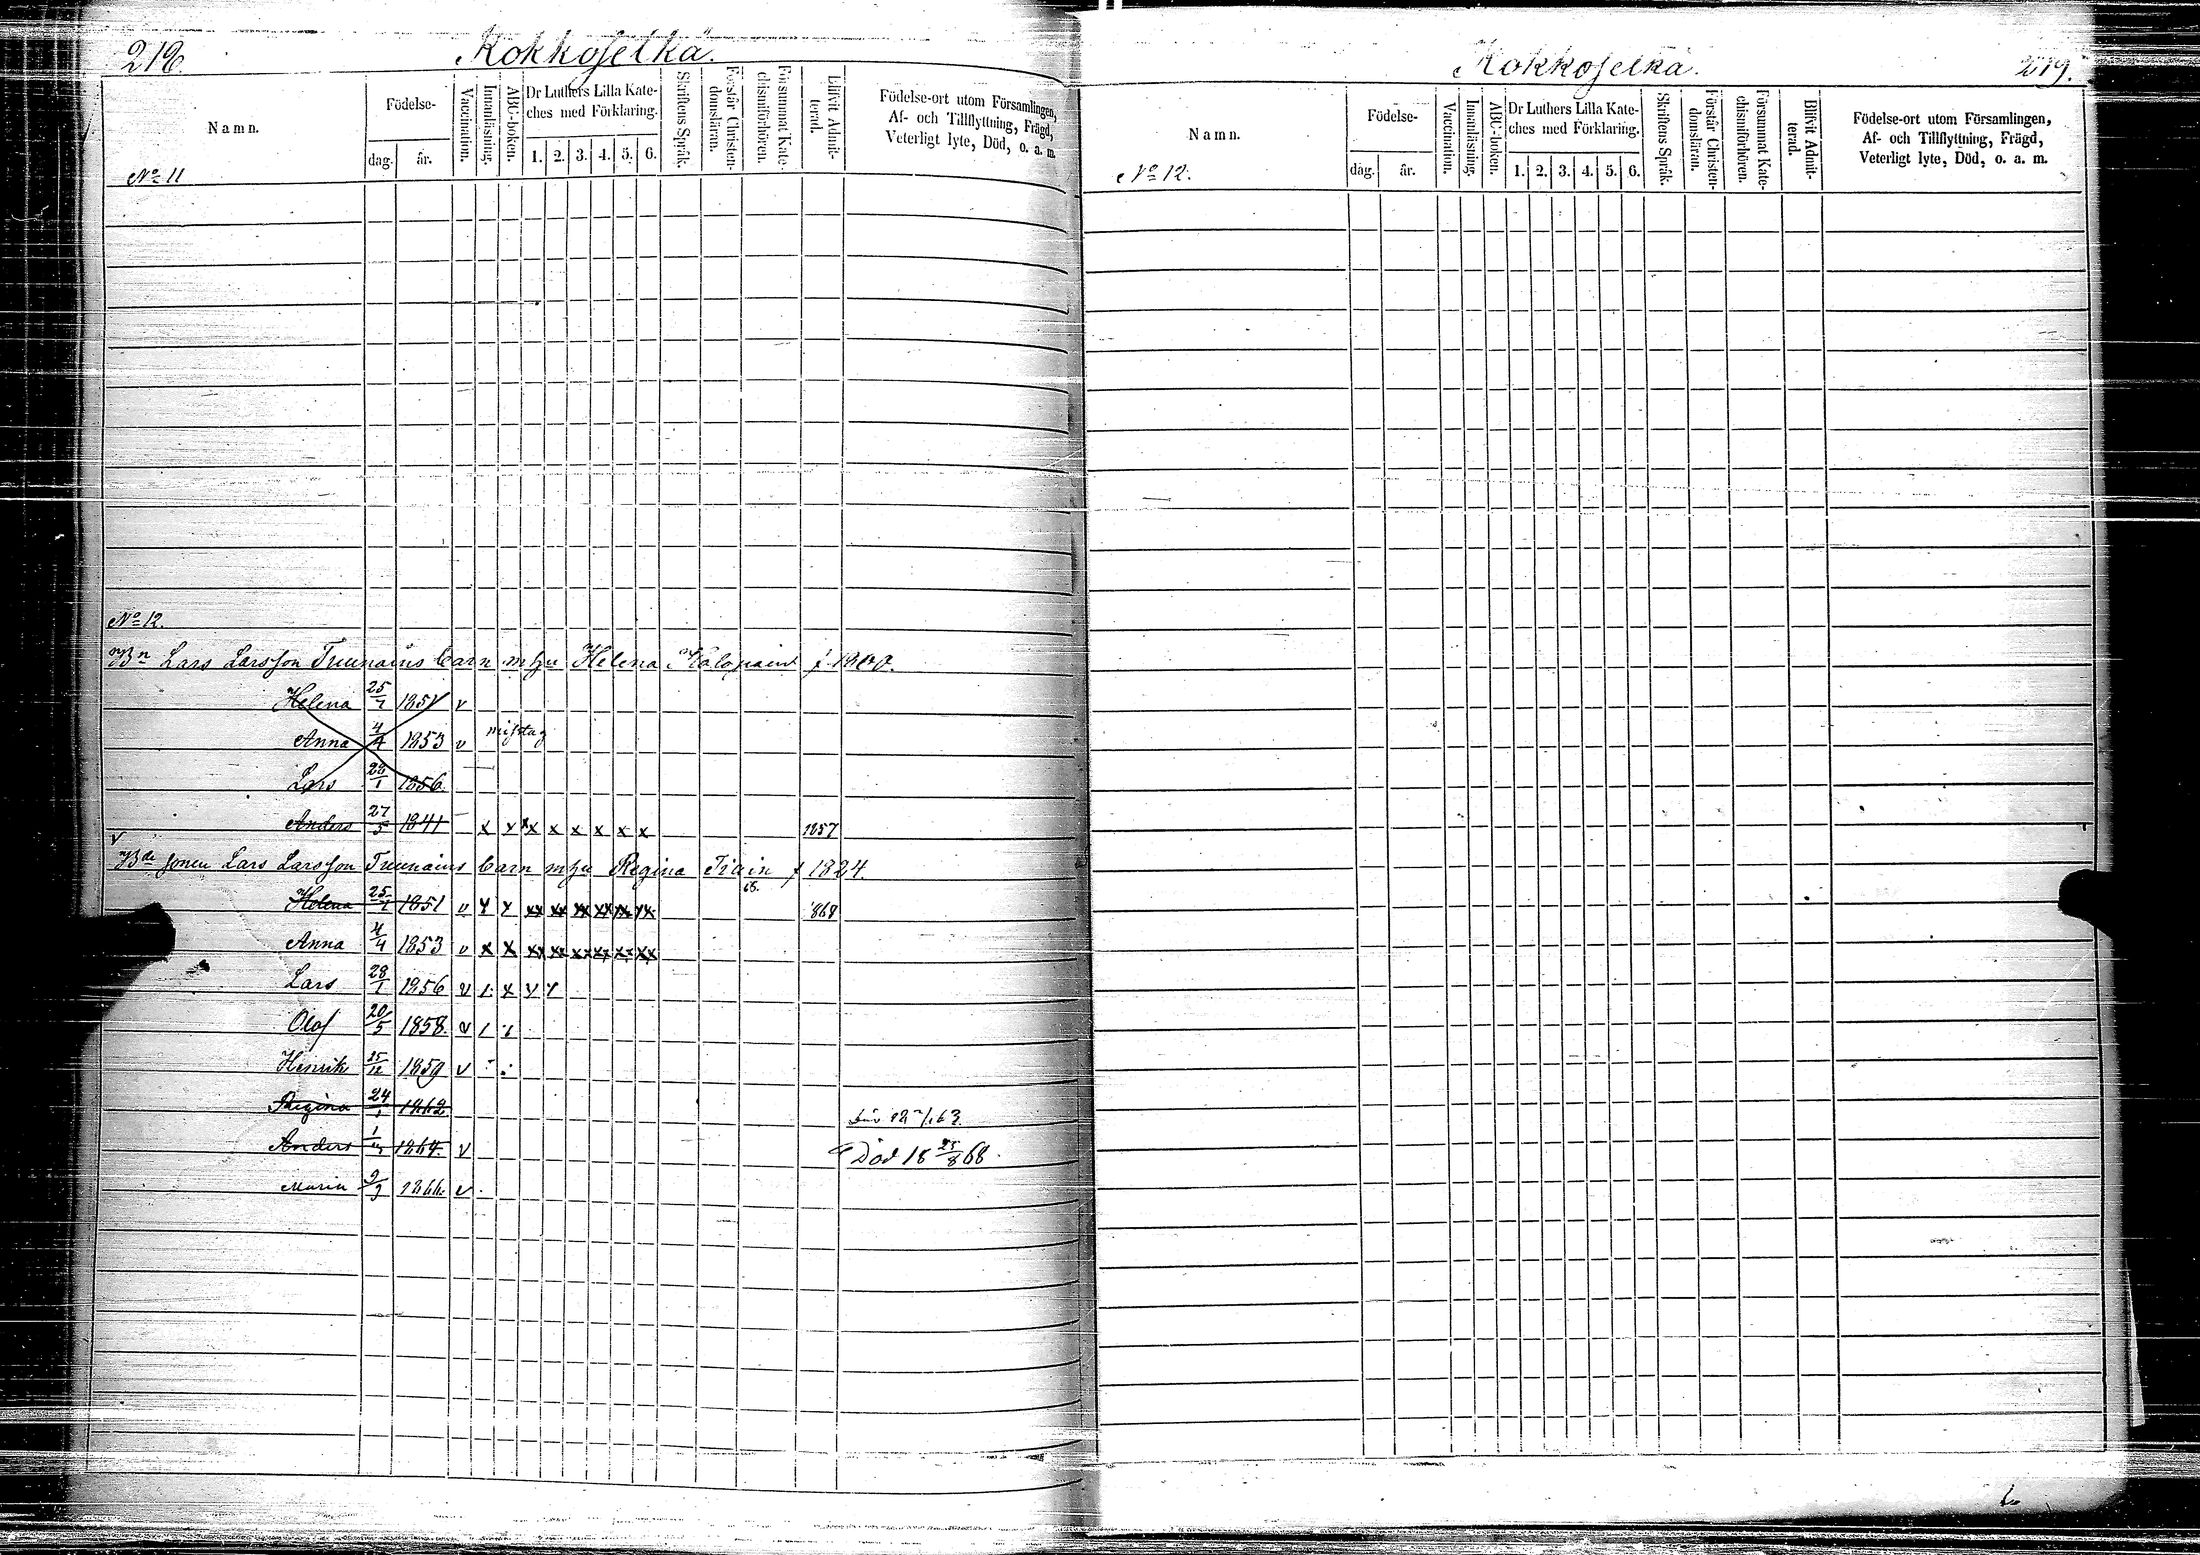 218
Kokkoselkä.
Namn.
Födelse-
dag.
år.
Vaccination.
Innanläsning.
ABC-boken.
Dr Luthers Lilla Kate-
ches med Förklaring.
1. 2. 3. 4. 5. 6.
Skriftens Språk.
Förstår Christen-
domsläran.
Försummat Kate-
chismiförhören.
Blifvit Admit-
terad.
Födelse-ort utom Församlingen,
Af- och Tillflyttning, Frägd,
Veterligt lyte, Död, o. a. m.
No 11
No 12.
Bn Lars Larsson Tuunains barn m hu Helena f 1800.
Helena 25/1 1851 v
Anna 4/4 1853 v misstag
Lars 28/1 1856
Anders 27/5 1841 x x x x x x x x 1857
v
Bde sonen Lars Larsson Tuunains barn m hu Regina Tiain f 1824.
68.
Helena 25/1 1851 v x x xx xx xx xx xx xx 1868
Anna 4/4 1853 v x x xx xx xx xx xx xx
Lars 28/1 1856 v
Olof 20/5 1858. v
Henrik 15/12 1859 v
Regina 24/1 1862
Anders 1864. v Död 18 25/8 68.
Maria 9/9 1866. v
Kokkoselkä.
219.
Namn.
Födelse-
dag.
år.
Vaccination.
Innanläsning.
ABC-boken.
Dr Luthers Lilla Kate-
ches med Förklaring.
1. 2. 3. 4. 5. 6.
Skriftens Språk.
Förstår Christen-
domsläran.
Försummat Kate-
chismiförhören.
Blifvit Admit-
terad.
Födelse-ort utom Församlingen,
Af- och Tillflyttning, Frägd,
Veterligt lyte, Död, o. a. m.
No 12.